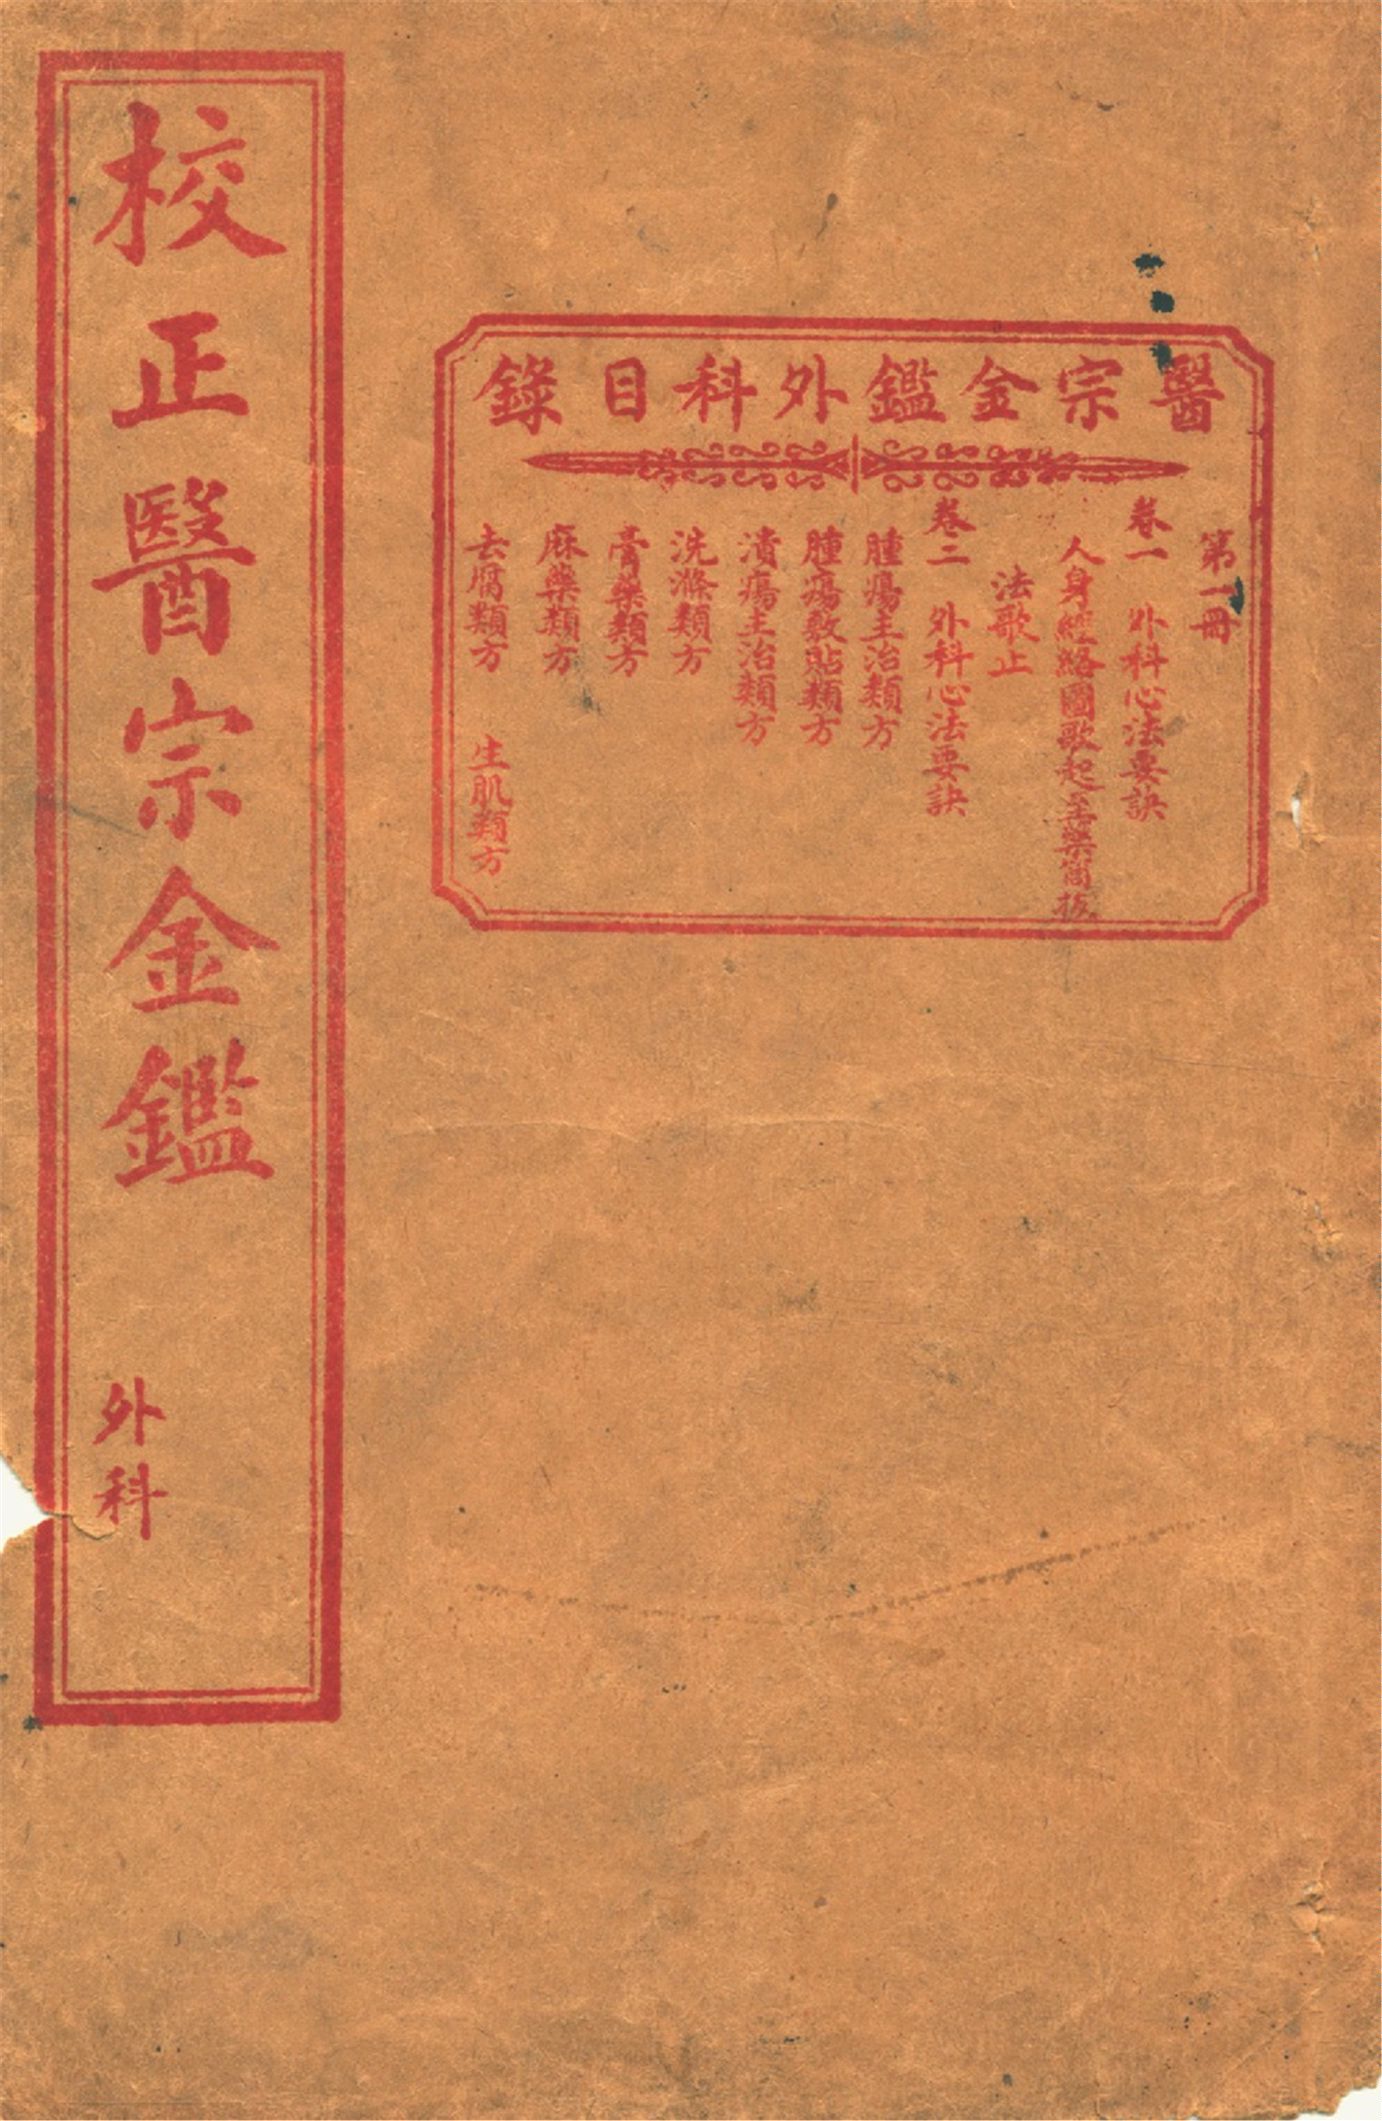 校正醫宗金鑑
外科
醫宗金鑑外科目錄
第一冊
卷一 外科心法要訣
人身經絡圖歌起至藥筒拔
法歌止
卷二 外科心法要訣
腫瘍主治類方
腫瘍敷貼類方
潰瘍主治類方
洗滌類方
膏藥類方
麻藥類方
去腐類方 生肌類方